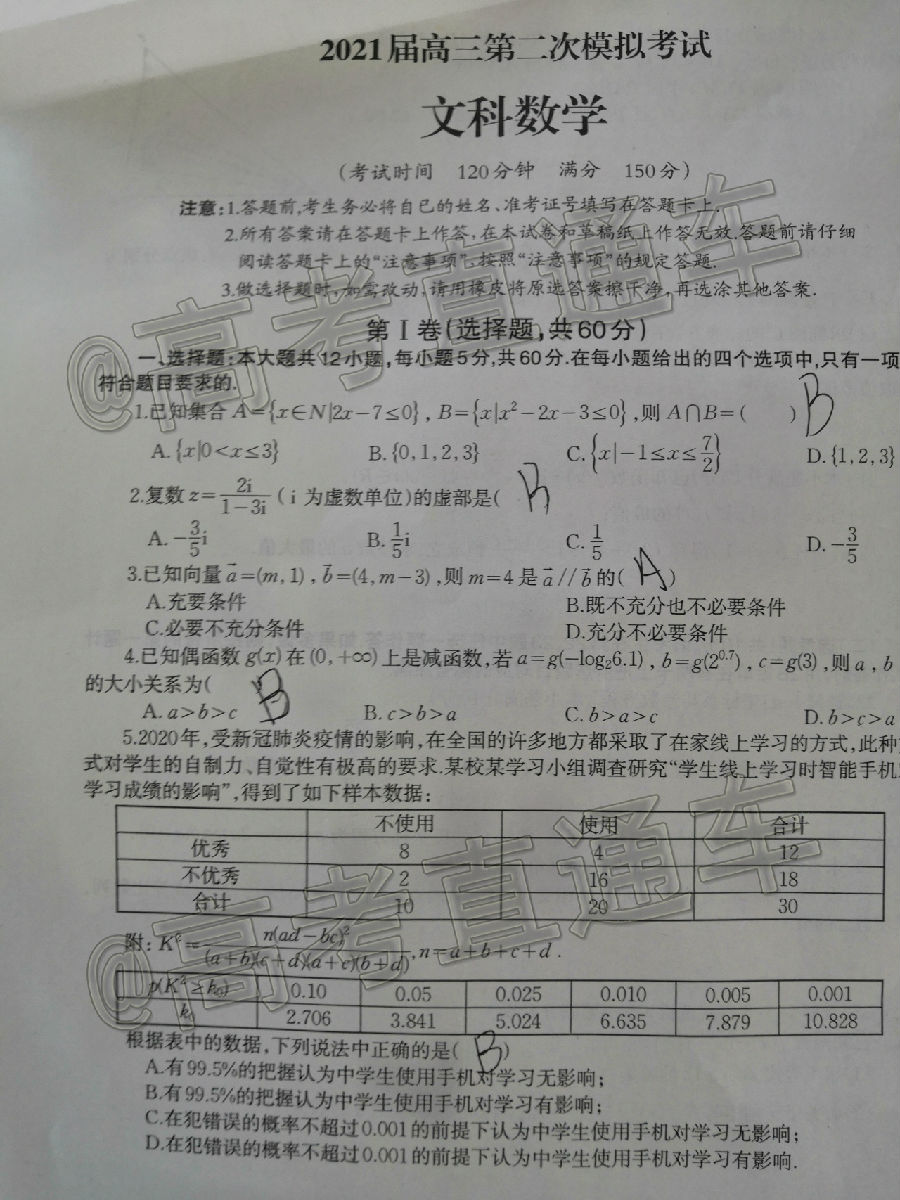 2021届高三第二次模拟考试
文科数学
(考试时间 120分钟 满分 150分)
注意:1.答题前,考生务必将自已的姓名、准考证号填写在答题卡上.
2.所有答案请在答题卡上作答,在本试卷和草稿纸上作答无效.答题前请仔细
阅读答题卡上的“注意事项”,按照“注意事项”的规定答题.
3.做选择题时,如需改动,请用橡皮将原选答案擦干净,再选涂其他答案.
第Ⅰ卷(选择题,共60分)
一、选择题:本大题共12小题,每小题5分,共60分.在每小题给出的四个选项中,只有一项
符合题目要求的.
1.已知集合 A={x∈N|2x-7≤0},B={x|x²-2x-3≤0},则 A∩B=( ) B
A.{x|0<x≤3} B.{0,1,2,3} C.{x|-1≤x≤7/2} D.{1,2,3}
2.复数 z=2i/(1-3i) (i 为虚数单位)的虚部是(
A.-3/5i B.1/5i C.1/5 D.-3/5
3.已知向量 a⃗=(m,1),b⃗=(4,m-3),则 m=4 是 a⃗//b⃗ 的( A )
A.充要条件 B.既不充分也不必要条件
C.必要不充分条件 D.充分不必要条件
4.已知偶函数 g(x) 在 (0,+∞) 上是减函数,若 a=g(-log₂6.1),b=g(2^0.7),c=g(3),则 a,b
的大小关系为( B
A.a>b>c B.c>b>a C.b>a>c D.b>c>a
5.2020年,受新冠肺炎疫情的影响,在全国的许多地方都采取了在家线上学习的方式,此种
式对学生的自制力、自觉性有极高的要求.某校某学习小组调查研究“学生线上学习时智能手机
学习成绩的影响”,得到了如下样本数据:
不使用 使用 合计
优秀 8 4 12
不优秀 2 16 18
合计 10 20 30
附:K²=n(ad-bc)²/((a+b)(c+d)(a+c)(b+d)),n=a+b+c+d.
p(K²≥k₀) 0.10 0.05 0.025 0.010 0.005 0.001
k₀ 2.706 3.841 5.024 6.635 7.879 10.828
根据表中的数据,下列说法中正确的是( B )
A.有99.5%的把握认为中学生使用手机对学习无影响;
B.有99.5%的把握认为中学生使用手机对学习有影响;
C.在犯错误的概率不超过0.001的前提下认为中学生使用手机对学习无影响;
D.在犯错误的概率不超过0.001的前提下认为中学生使用手机对学习有影响.
@高考直通车
@高考直通车